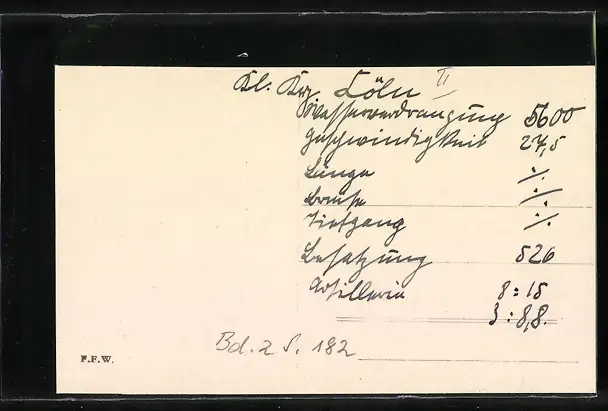 Kl. Krz. Cöln II
Wasserverdrängung 5600
Geschwindigkeit 27,5
Länge ./.
Breite ./.
Tiefgang ./.
Besatzung 526
Artillerie 8:15
3:8,8.
Bd. 2 S. 182
F.F.W.